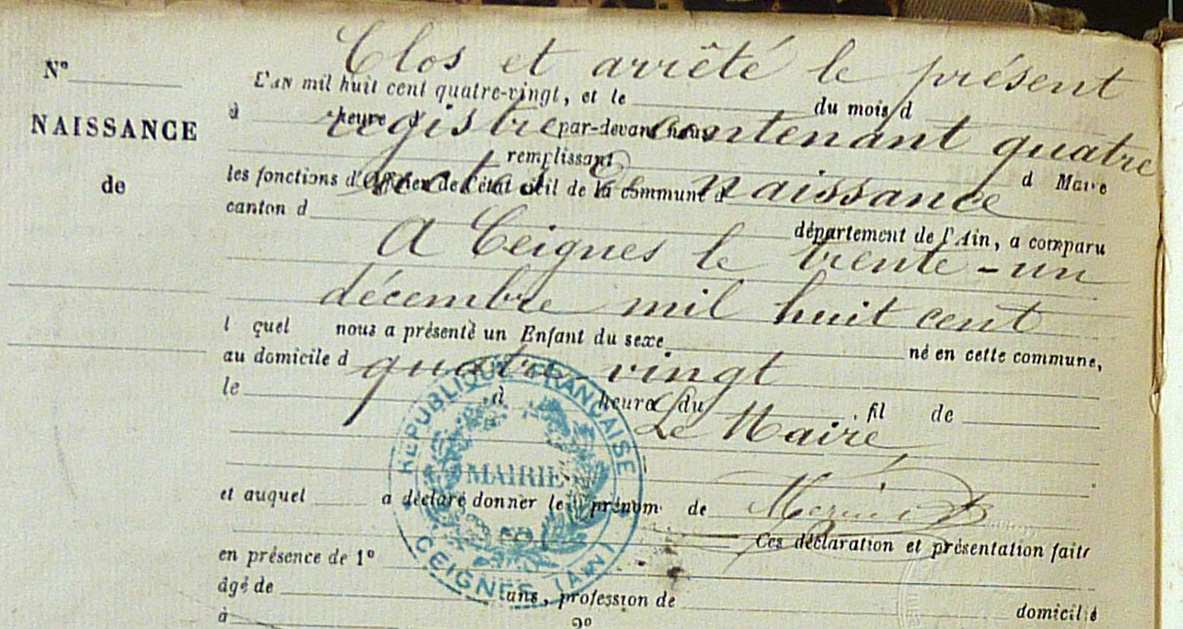 Clos et arrêté le présent
N°
L'AN mil huit cent quatre-vingt, et le du mois d
à heure par-devant nous
registre contenant quatre
NAISSANCE
remplissant
de
les fonctions d'officier de l'état civil de la commune d d Maire
actes de naissance
canton d département de l'Ain, a comparu
A Ceignes le trente-un
décembre mil huit cent
l quel nous a présenté un Enfant du sexe né en cette commune,
au domicile d
quatre vingt
le à heure du , fil de
Le Maire,
RÉPUBLIQUE FRANÇAISE
MAIRIE
CEIGNES (AIN)
et auquel a déclaré donner le prénom de
Ces déclaration et présentation faites
en présence de 1°
âgé de ans, profession de domicilié
à 2°